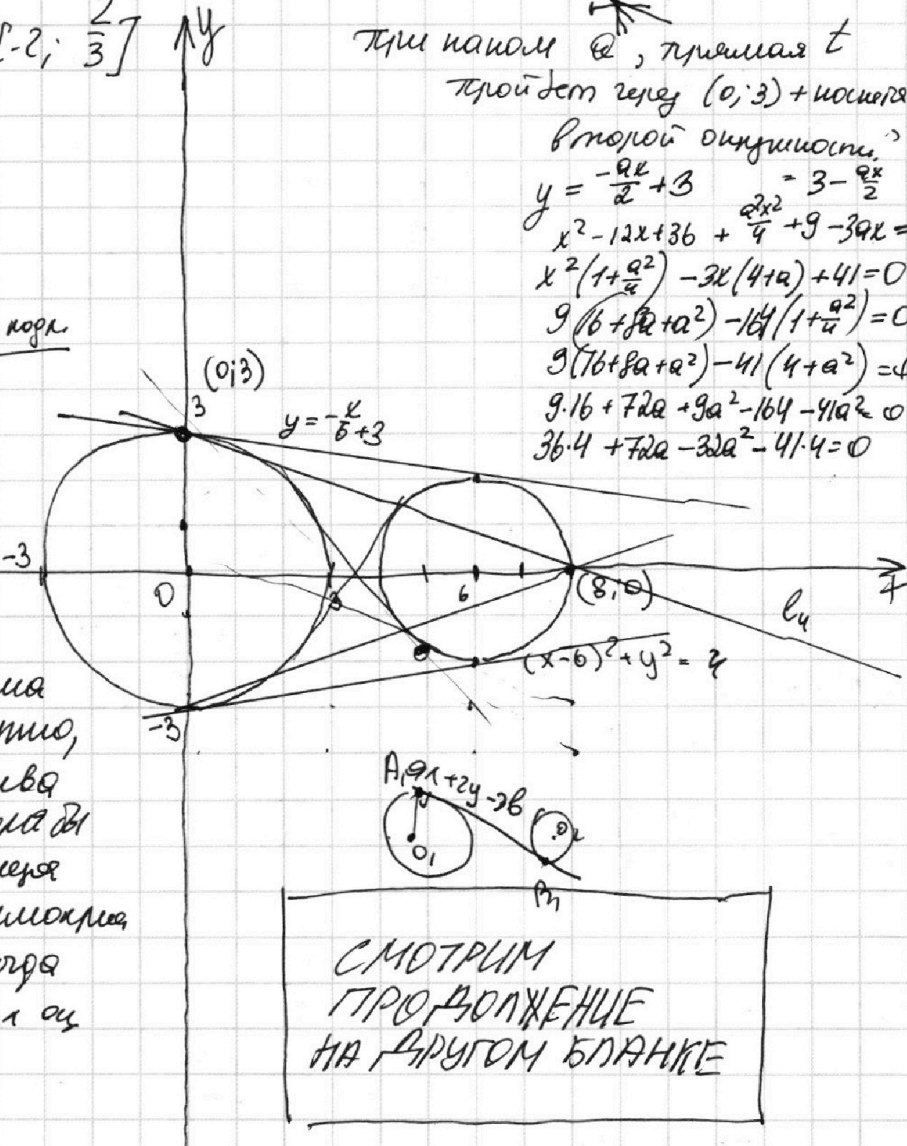 [-2; 2/3]
y
при каком a, прямая t
пройдет через (0;3) + касается
второй окружности?
y = -ax/2 + 3 = 3 - ax/2
x² - 12x + 36 + a²x²/4 + 9 - 3ax =
x²(1 + a²/4) - 3x(4+a) + 41 = 0
9(16 + 8a + a²) - 164(1 + a²/4) = 0
9(16 + 8a + a²) - 41(4 + a²) =
9·16 + 72a + 9a² - 164 - 41a² = 0
36·4 + 72a - 32a² - 41·4 = 0
(0;3)
3
y = -x/6 + 3
-3
0
3
6
(8;0)
l₄
(x-6)² + y² = 4
-3
ма
ива
A₁ ax + 2y - 3b
O₁
O₂
B₁
СМОТРИМ
ПРОДОЛЖЕНИЕ
НА ДРУГОМ БЛАНКЕ